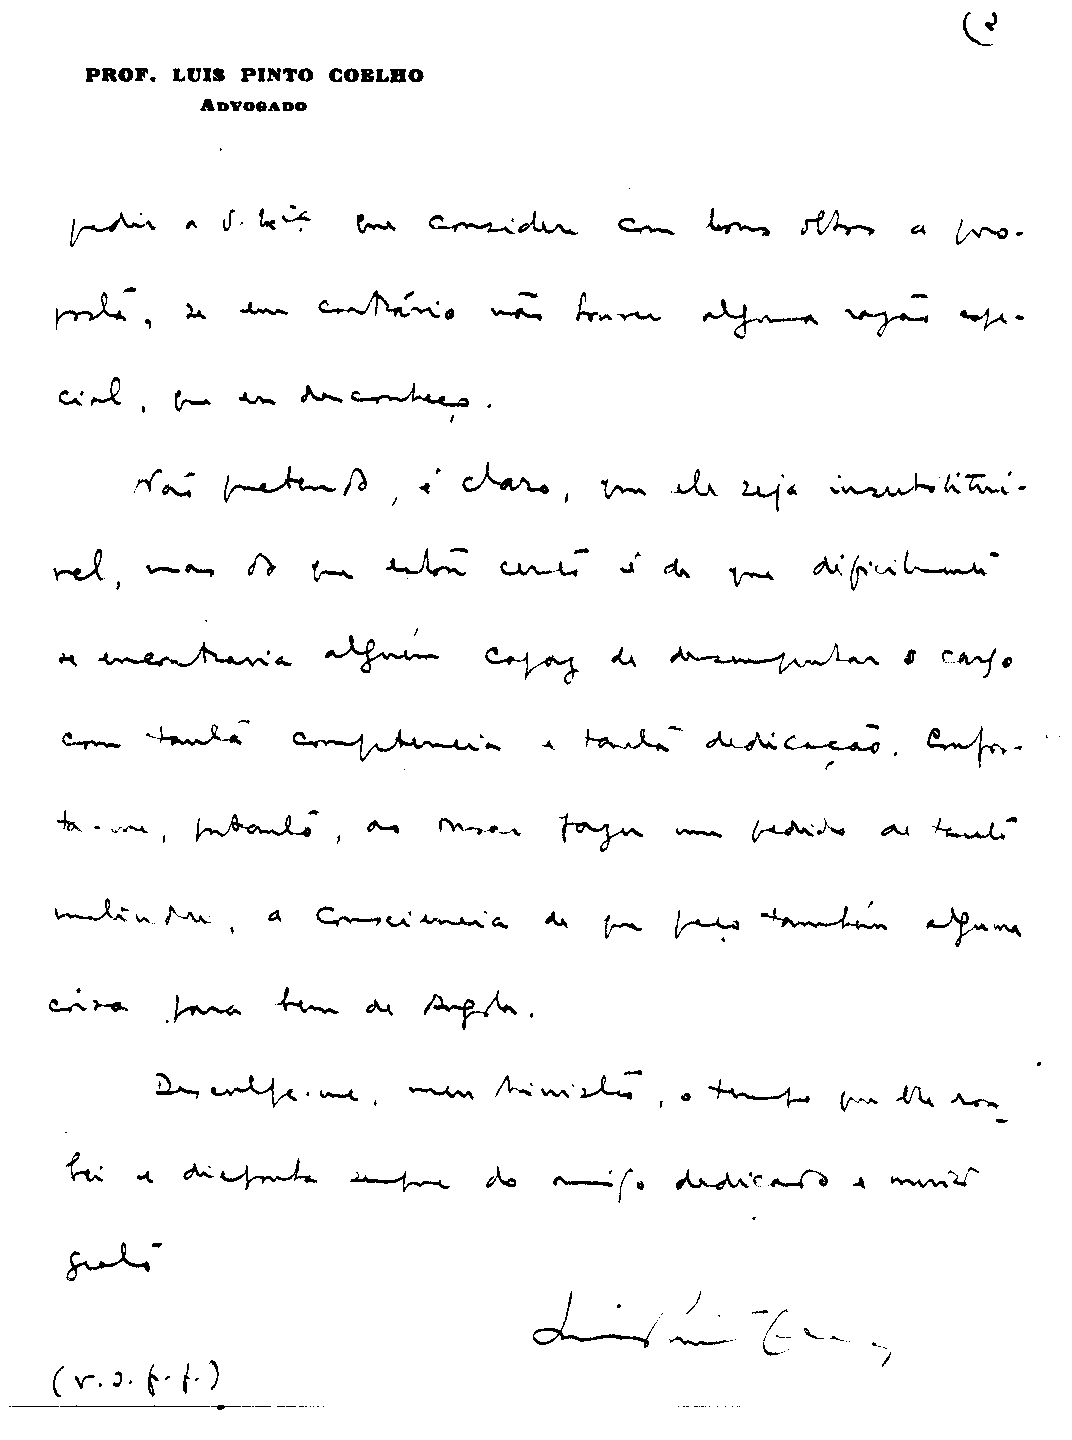 (2
PROF. LUIS PINTO COELHO
ADVOGADO
pedir a V. Exciª que considere com bons olhos a pro-
posta, se em contrário não houver alguma razão espe-
cial, que eu desconheço.
Não pretendo, é claro, que ele seja insubstituí-
vel, mas do que estou certo é de que dificilmente
se encontraria alguém capaz de desempenhar o cargo
com tanta competencia e tanta dedicação. Confor-
ta-me, portanto, ao ousar fazer um pedido de tanto
melindre, a consciencia de que peço também alguma
coisa para bem de Angola.
Desculpe-me, meu Ministro, o tempo que lhe rou-
bei e disponha sempre do amigo dedicado e muito
grato
Luis Pinto Coelho
(v.s.f.f.)